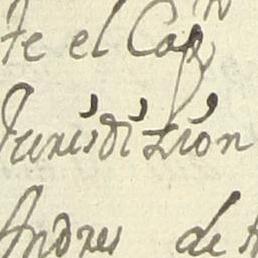 te el Capn
Jurisdizion
Andres de A